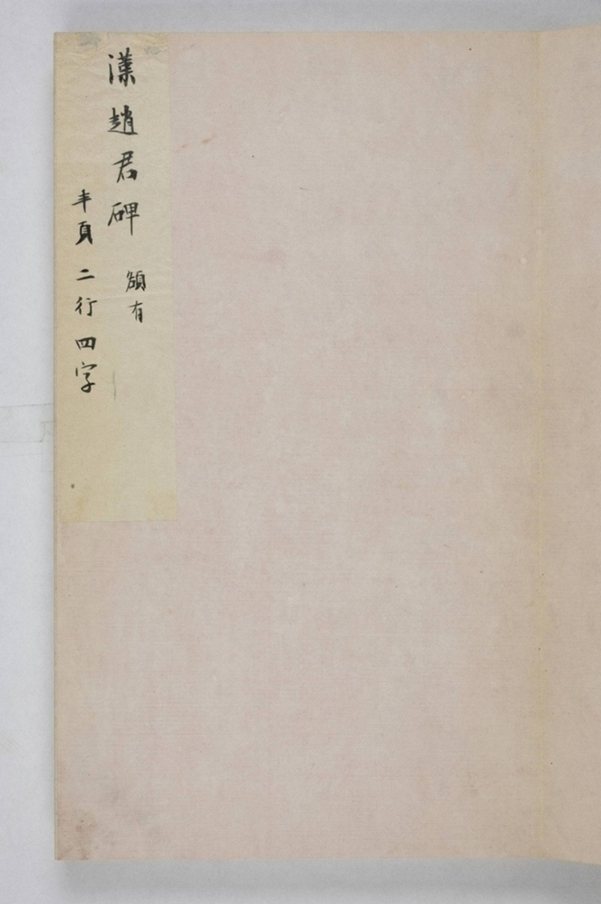 漢趙君碑 額有
半頁 二行 四字